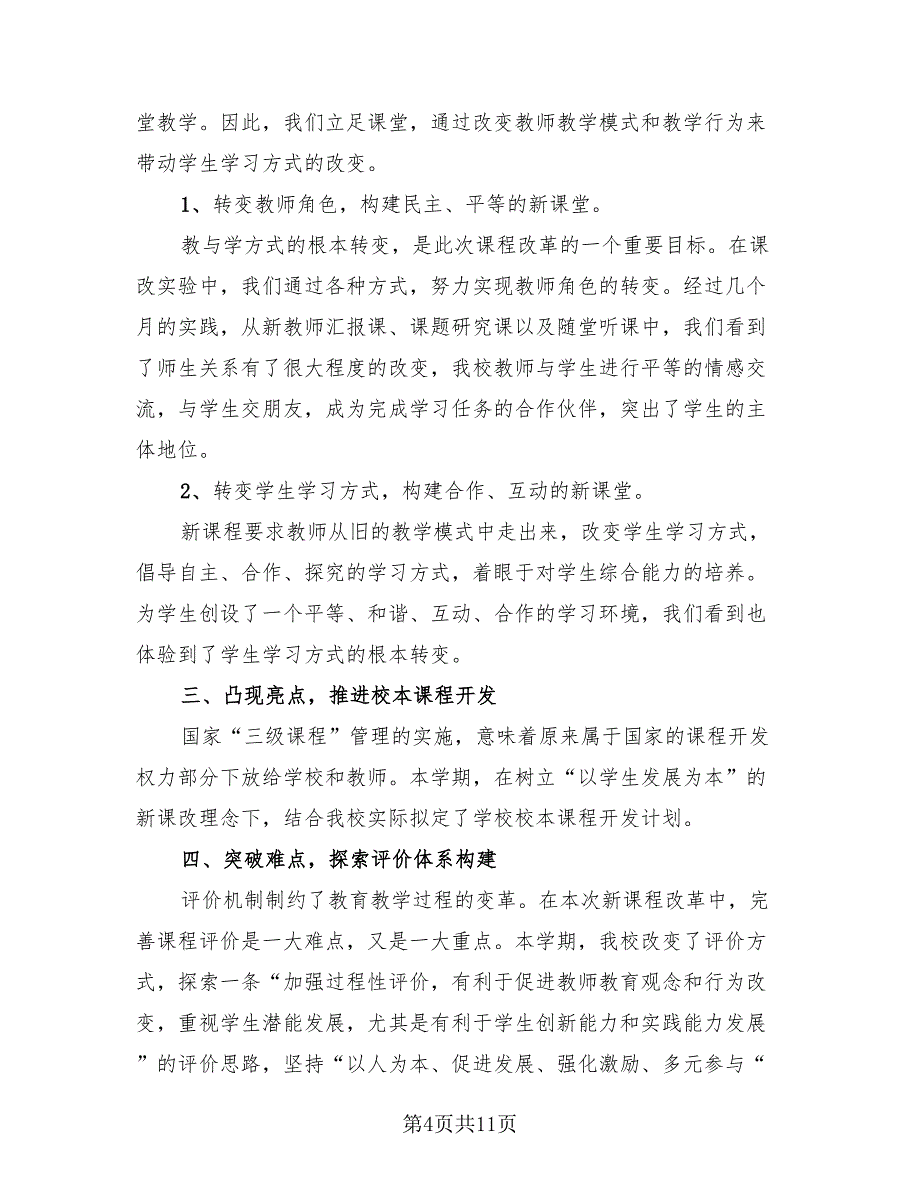 堂教学。因此，我们立足课堂，通过改变教师教学模式和教学行为来
带动学生学习方式的改变。
1、转变教师角色，构建民主、平等的新课堂。
教与学方式的根本转变，是此次课程改革的一个重要目标。在课
改实验中，我们通过各种方式，努力实现教师角色的转变。经过几个
月的实践，从新教师汇报课、课题研究课以及随堂听课中，我们看到
了师生关系有了很大程度的改变，我校教师与学生进行平等的情感交
流，与学生交朋友，成为完成学习任务的合作伙伴，突出了学生的主
体地位。
2、转变学生学习方式，构建合作、互动的新课堂。
新课程要求教师从旧的教学模式中走出来，改变学生学习方式，
倡导自主、合作、探究的学习方式，着眼于对学生综合能力的培养。
为学生创设了一个平等、和谐、互动、合作的学习环境，我们看到也
体验到了学生学习方式的根本转变。
三、凸现亮点，推进校本课程开发
国家“三级课程”管理的实施，意味着原来属于国家的课程开发
权力部分下放给学校和教师。本学期，在树立“以学生发展为本”的
新课改理念下，结合我校实际拟定了学校校本课程开发计划。
四、突破难点，探索评价体系构建
评价机制制约了教育教学过程的变革。在本次新课程改革中，完
善课程评价是一大难点，又是一大重点。本学期，我校改变了评价方
式，探索一条“加强过程性评价，有利于促进教师教育观念和行为改
变，重视学生潜能发展，尤其是有利于学生创新能力和实践能力发展
”的评价思路，坚持“以人为本、促进发展、强化激励、多元参与“
第4页共11页